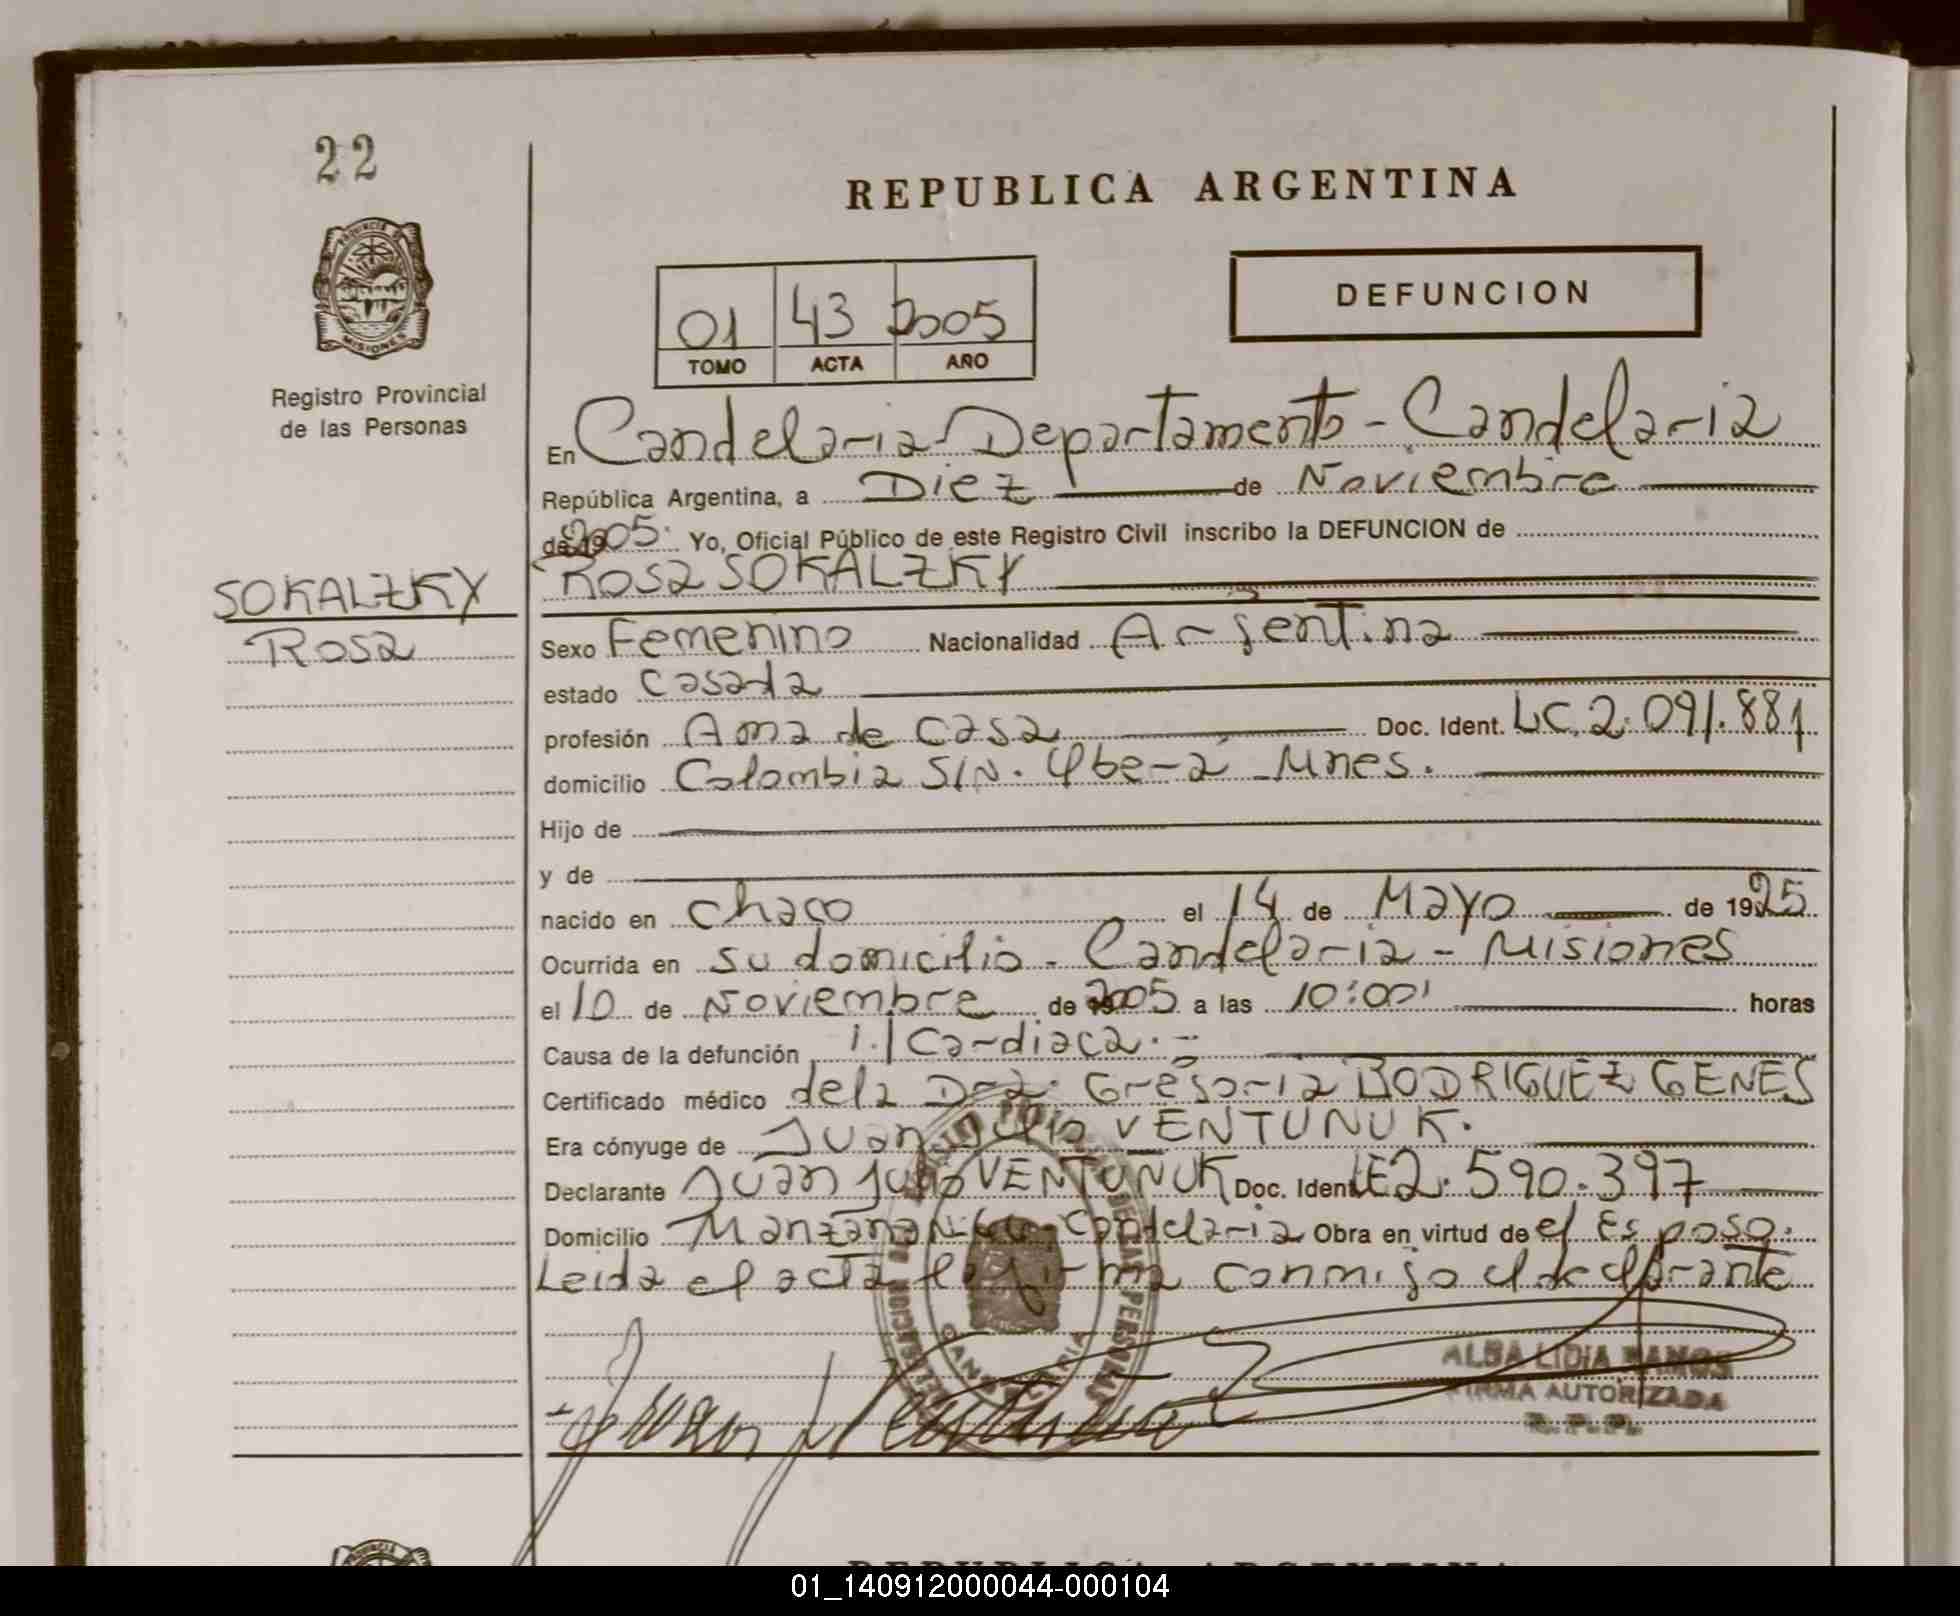 22
REPUBLICA ARGENTINA
PROVINCIA DE
MISIONES
01 43 2005
TOMO ACTA AÑO
DEFUNCION
Registro Provincial
de las Personas
En Candelaria Departamento - Candelaria
República Argentina, a Diez de Noviembre
de 19 2005. Yo, Oficial Público de este Registro Civil inscribo la DEFUNCION de
SOKALZKY
Rosa
Rosa SOKALZKY
Sexo Femenino Nacionalidad Argentina
estado casada
profesión Ama de casa Doc. Ident. LC. 2.091.881
domicilio Colombia S/N. - Mnes.
Hijo de
y de
nacido en chaco el 14 de Mayo de 1925
Ocurrida en su domicilio - Candelaria - Misiones
el 10 de Noviembre de 2005 a las 10:00' horas
Causa de la defunción i./Cardiaca.-
Certificado médico de la Dra. Gregoria RODRIGUEZ GENES
Era cónyuge de Juan Julio VENTUNUK.
Declarante Juan Julio VENTUNUK Doc. Ident. LE 2.590.397
Domicilio Manzana Candelaria Obra en virtud de el Esposo.
Leida el acta la firma conmigo el declarante
DE LAS PERSONAS
ALBA LIDIA RAMOS
FIRMA AUTORIZADA
R.P.P.
REPUBLICA ARGENTINA
01_140912000044-000104